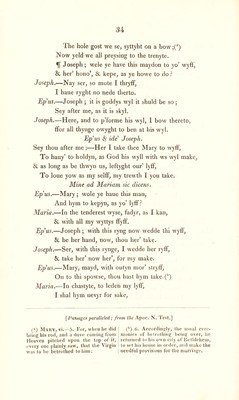 34
The hole gost we se, syttyht on a bow;(⁵)
Now yeld we all preysing to the trenyte.
¶ Joseph; wele ye have this maydon to yo' wyff,
& her hono', & kepe, as ye howe to do?
Joseph.—Nay ser, so mote I thryff,
I haue ryght no nede therto.
Ep'us.—Joseph; it is goddys wyl it shuld be so;
Sey after me, as it is skyl.
Joseph.—Here, and to p'forme his wyl, I bow therto.
ffor all thynge owyght to ben at his wyl.
Ep'us & idē Joseph.
Sey thou after me:—Her I take thee Mary to wyff,
To hauy' to holdyn, as God his wyll with ws wyl make,
& as long as be thwyn us, leftyght our' lyff,
To loue yow as my selff, my trewth I you take.
Mine ad Mariam sic dicens.
Ep'us.—Mary; wole ye haue this man,
And hym to kepyn, as yo' lyff?
Maria.—In the tenderest wyse, fadyr, as I kan,
& with all my wyttys ffyff.
Ep'us.—Joseph; with this ryng now wedde thi wyff,
& be her hand, now, thou her' take.
Joseph.—Ser, with this rynge, I wedde her ryff,
& take her' now her', for my make.
Ep'us.—Mary, mayd, with outyn mor' stryff,
On to thi spowse, thou hast hym take.(⁶)
Maria.—In chastyte, to leden my lyff,
I shal hym nevyr for sake,
[Passages paralleled; from the Apoc. N. Test.]
(⁵) MARY, vi.—5. For, when he did
bring his rod, and a dove coming from
Heaven pitched upon the top of it,
every one plainly saw, that the Virgin
was to be betrothed to him:
(⁶) 6. Accordingly, the usual cere-
monies of betrothing being over, he
returned to his own city of Bethlehem,
to set his house in order, and make the
needful provisions for the marriage.